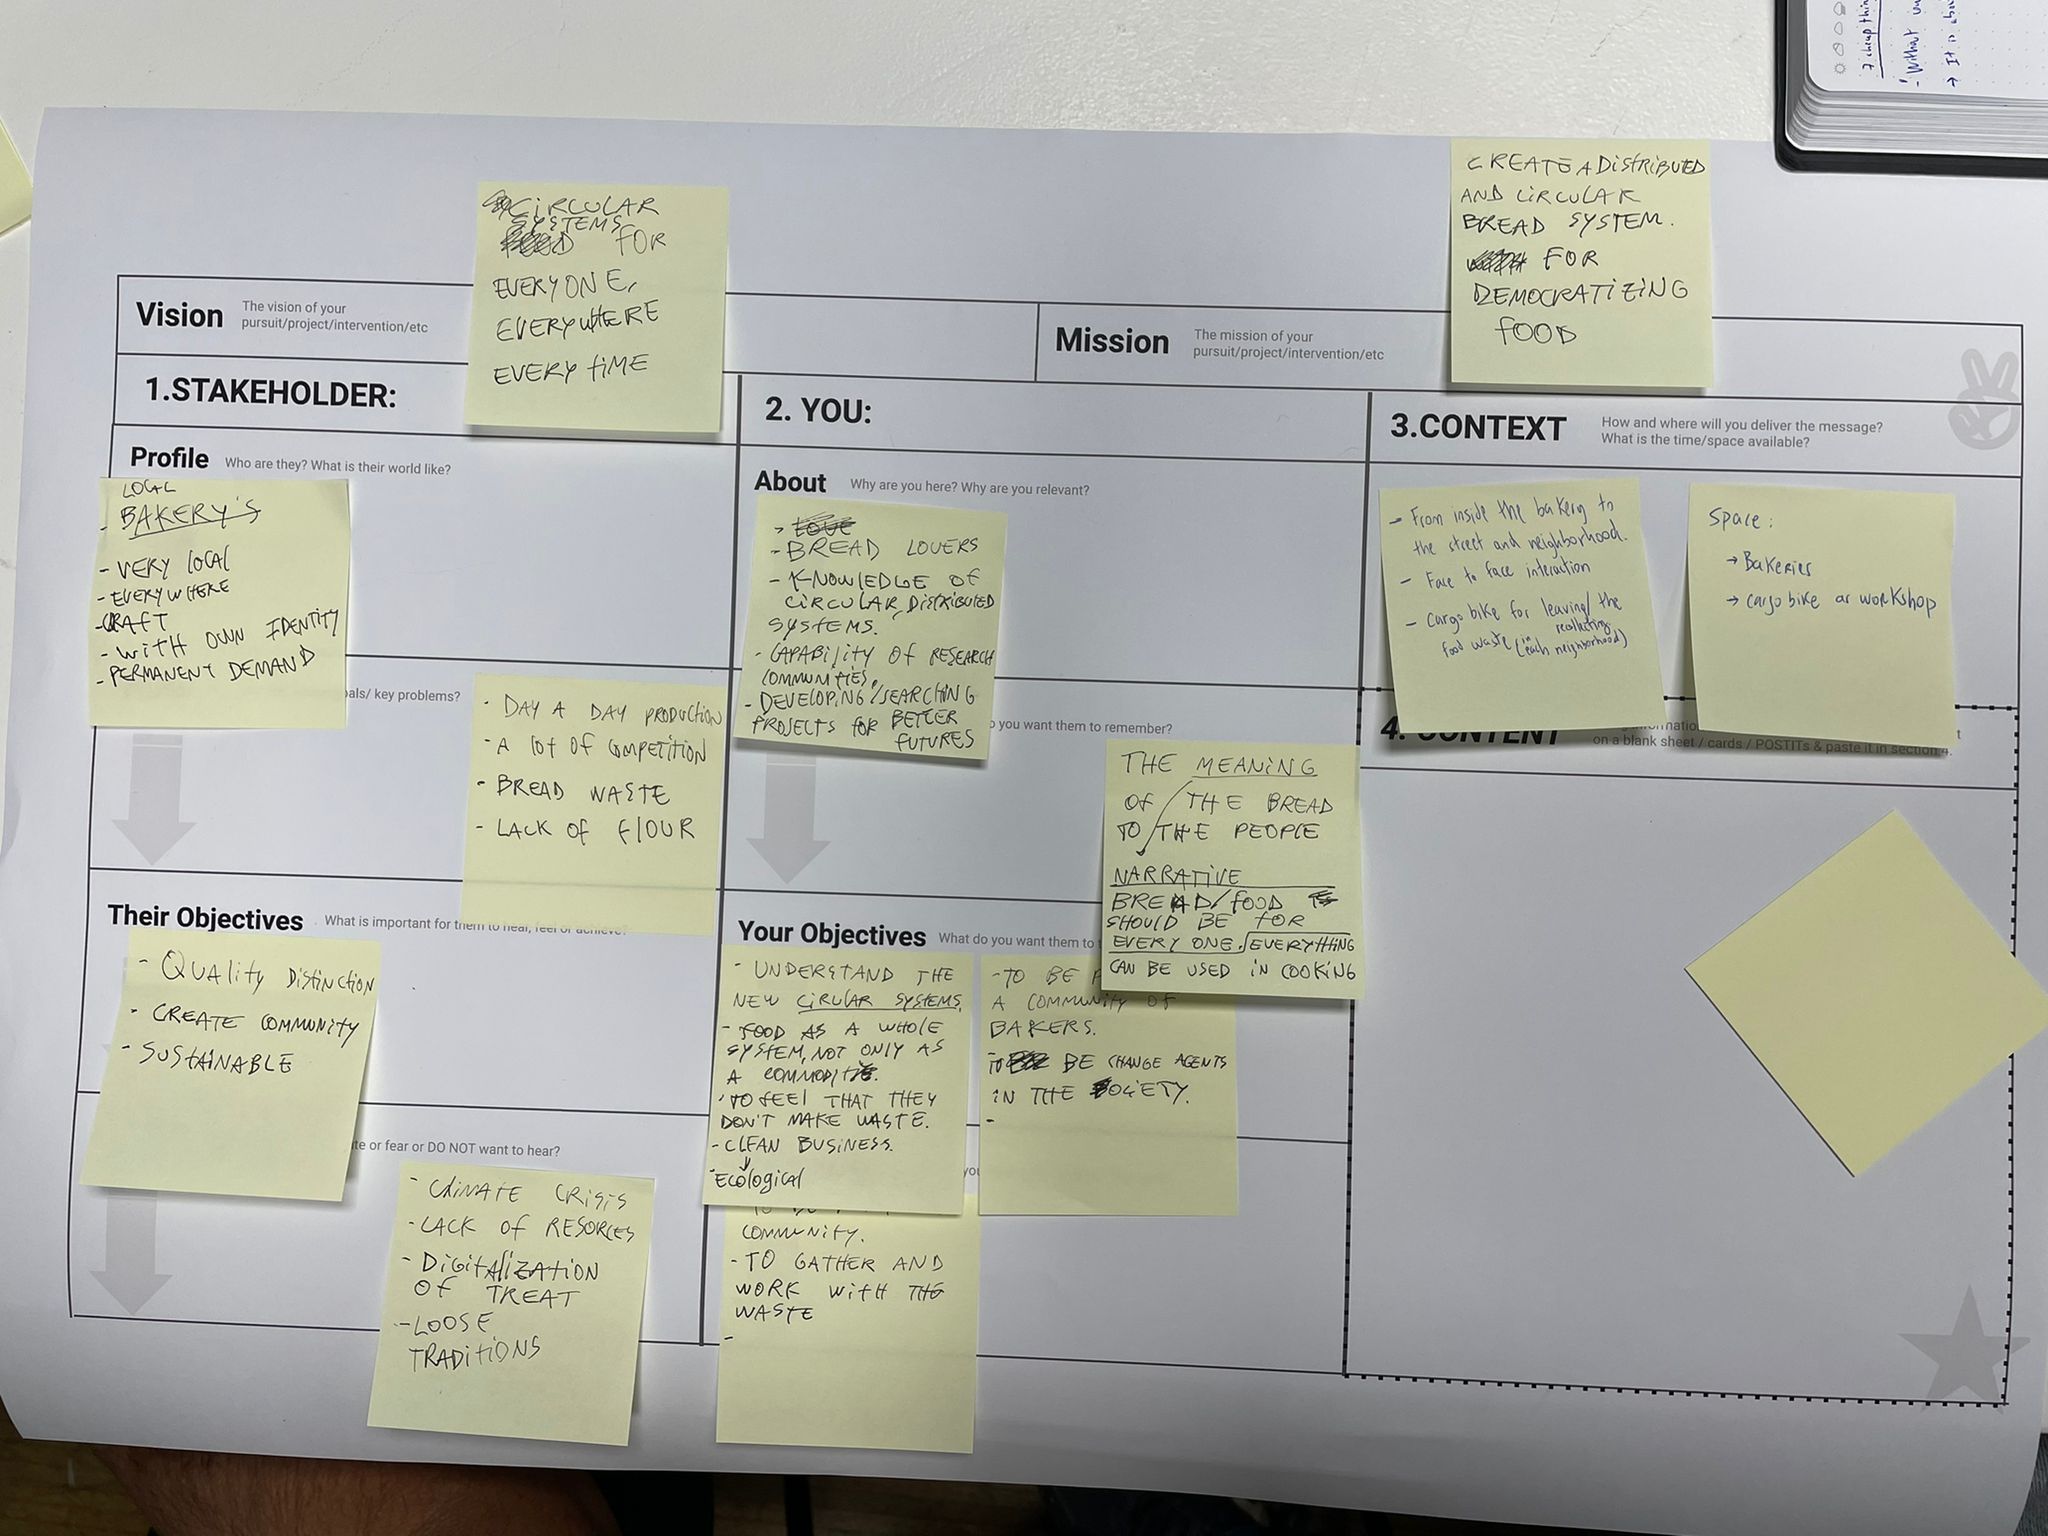 7 cheap thin
- Without
→ It is abo
CIRCULAR
SYSTEMS
FOR
EVERYONE,
EVERYWHERE
EVERY TIME
CREATE A DISTRIBUTED
AND CIRCULAR
BREAD SYSTEM.
FOR
DEMOCRATIZING
FOOD
Vision
The vision of your
pursuit/project/intervention/etc
Mission
The mission of your
pursuit/project/intervention/etc
1.STAKEHOLDER:
Profile Who are they? What is their world like?
LOCAL
- BAKERY'S
- VERY LOCAL
- EVERYWHERE
- CRAFT
- WITH OWN IDENTITY
- PERMANENT DEMAND
als/ key problems?
- DAY A DAY PRODUCTION
- A LOT OF COMPETITION
- BREAD WASTE
- LACK OF FLOUR
Their Objectives What is important for them to hear, feel or achieve?
- QUALITY DISTINCTION
- CREATE COMMUNITY
- SUSTAINABLE
te or fear or DO NOT want to hear?
- CLIMATE CRISIS
- LACK OF RESORCES
- DIGITALIZATION
OF TREAT
- LOOSE
TRADITIONS
2. YOU:
About Why are you here? Why are you relevant?
- BREAD LOVERS
- KNOWLEDGE OF
CIRCULAR, DISTRIBUTED
SYSTEMS.
- CAPABILITY OF RESEARCH
COMMUNITIES.
- DEVELOPING/SEARCHING
PROJECTS FOR BETTER
FUTURES
you want them to remember?
THE MEANING
OF THE BREAD
TO THE PEOPLE
NARRATIVE
BREAD/FOOD
SHOULD BE FOR
EVERY ONE. EVERYTHING
CAN BE USED IN COOKING
Your Objectives What do you want them to
- UNDERSTAND THE
NEW CIRULAR SYSTEMS.
- FOOD AS A WHOLE
SYSTEM, NOT ONLY AS
A
- TO FEEL THAT THEY
DON'T MAKE WASTE.
- CLEAN BUSINESS.
- ECOLOGICAL
- TO BE
A COMMUNITY OF
BAKERS.
- TO BE CHANGE AGENTS
IN THE SOCIETY.
-
you
COMMUNITY.
- TO GATHER AND
WORK WITH THE
WASTE
-
3.CONTEXT
How and where will you deliver the message?
What is the time/space available?
- From inside the bakery to
the street and neighborhood.
- Face to face interaction
- Cargo bike for leaving/ the
food waste (in each neighborhood)
Space:
→ Bakeries
→ cargo bike as workshop
4. CONTENT
on a blank sheet / cards / POSTITs & paste it in section 4.